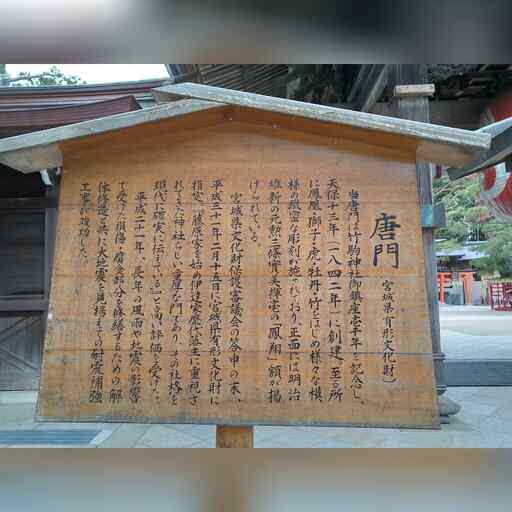 唐門
(宮城県有形文化財)
当唐門は竹駒神社御鎮座壱千年を記念し、
天保十三年(一八四二年)に創建、至る所
に鳳凰・獅子・虎・牡丹・竹をはじめ様々な模
様の緻密な彫刻が施されており、正面には明治
維新の元勲三條實美揮毫の「鳳翔」額が掲
げられている。
宮城県文化財保護審議会の答申の末、
平成三十一年二月十五日に宮城県有形文化財に
指定。「藤原家を始め伊達家歴代藩主に重視さ
れてきた神社らしい重厚な門であり、その社格を
現代に確実に伝えている」と高い評価を受けた。
平成三十一年、長年の風雨や地震の影響
で受けた損傷・腐食部分を修繕するための解
体修造と共に大地震を見据えての耐震補強
工事が竣功した。